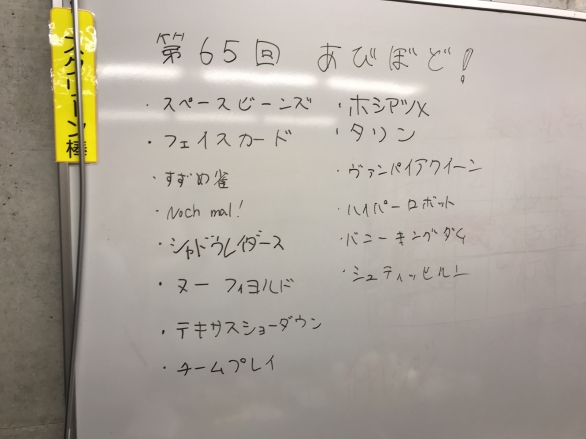 第65回 あびぼど!
・スペースビーンズ
・フェイスカード
・すずめ雀
・Noch mal!
・シャドウレイダース
・ヌーフィヨルド
・テキサスショーダウン
・チームプレイ
・ホシアツメ
・タリン
・ヴァンパイアクイーン
・ハイパーロボット
・バニーキングダム
・シュティッヒルム
スクリーン棒